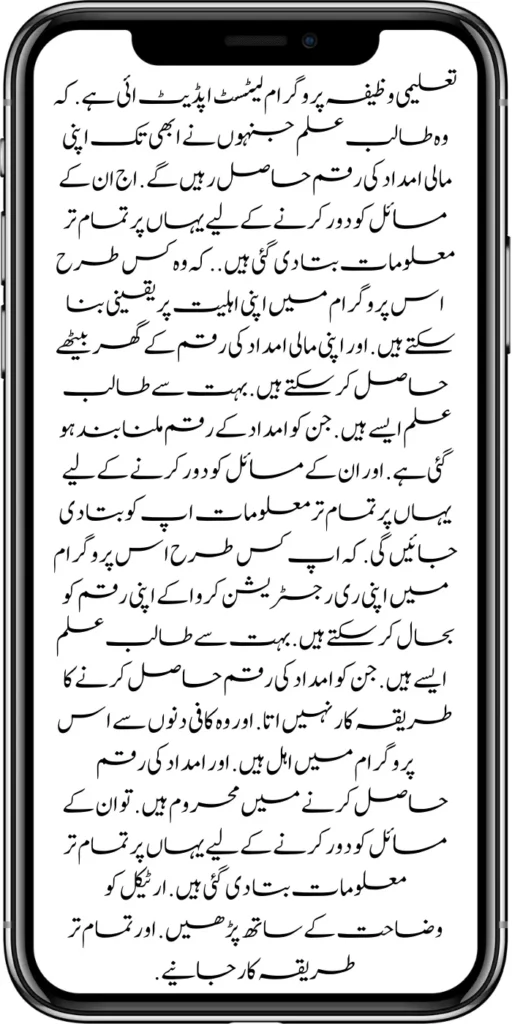 تعلیمی وظیفہ پروگرام لیٹسٹ اپڈیٹ ائی ہے. کہ
وہ طالب علم جنہوں نے ابھی تک اپنی
مالی امداد کی رقم حاصل رہیں گے. اج ان کے
مسائل کو دور کرنے کے لیے یہاں پر تمام تر
معلومات بتا دی گئی ہیں.. کہ وہ کس طرح
اس پروگرام میں اپنی اہلیت پر یقینی بنا
سکتے ہیں. اور اپنی مالی امداد کی رقم کے گھر بیٹھے
حاصل کر سکتے ہیں. بہت سے طالب
علم ایسے ہیں. جن کو امداد کے رقم ملنا بند ہو
گئی ہے. اور ان کے مسائل کو دور کرنے کے لیے
یہاں پر تمام تر معلومات اپ کو بتا دی
جائیں گی. کہ اپ کس طرح اس پروگرام
میں اپنی ری رجسٹریشن کروا کے اپنی رقم کو
بحال کر سکتے ہیں. بہت سے طالب علم
ایسے ہیں. جن کو امداد کی رقم حاصل کرنے کا
طریقہ کار نہیں اتا. اور وہ کافی دنوں سے اس
پروگرام میں اہل ہیں. اور امداد کی رقم
حاصل کرنے میں محروم ہیں. تو ان کے
مسائل کو دور کرنے کے لیے یہاں پر تمام تر
معلومات بتا دی گئی ہیں. ارٹیکل کو
وضاحت کے ساتھ پڑھیں. اور تمام تر
طریقہ کار جانیے.